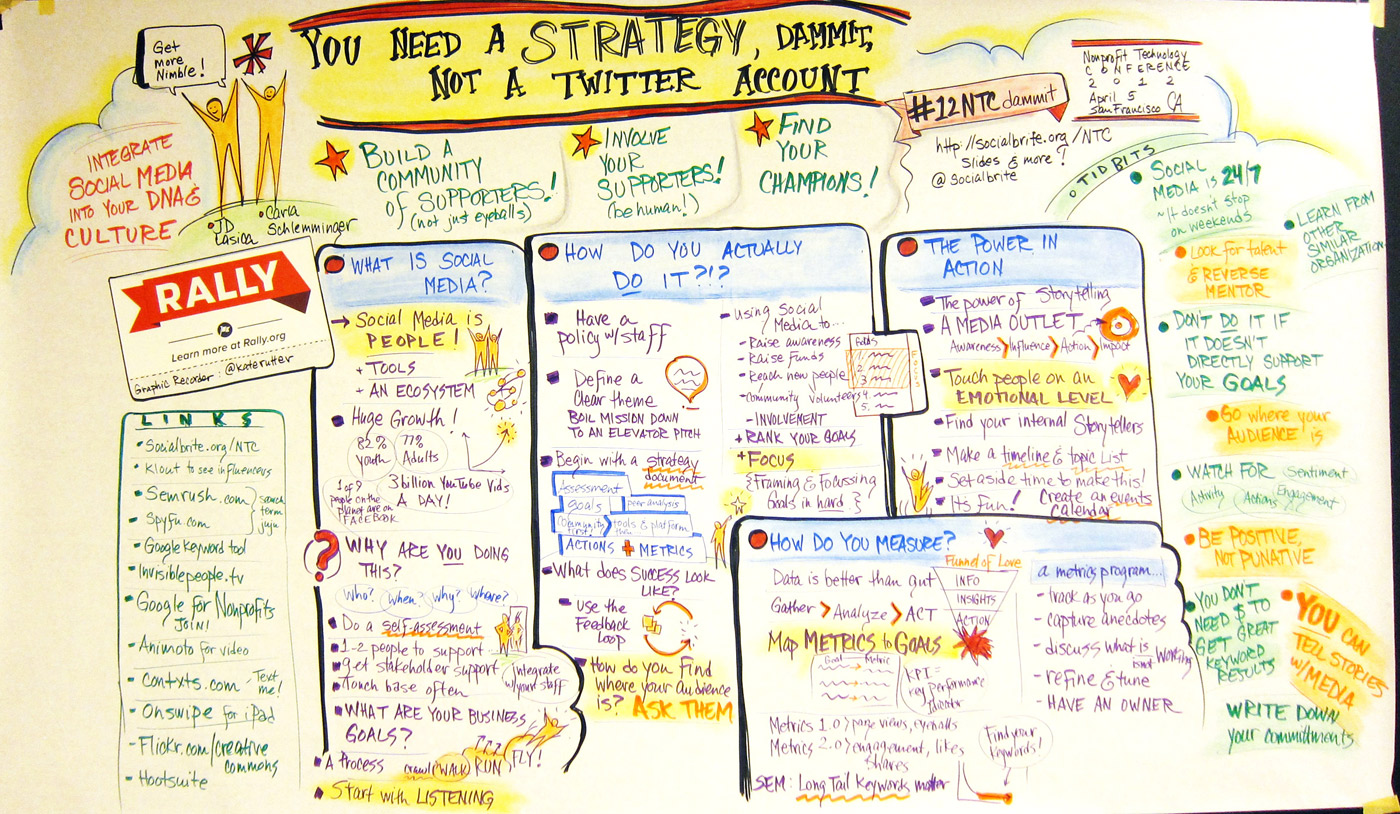 YOU NEED A STRATEGY, DAMMIT,
NOT A TWITTER ACCOUNT
Get
more
Nimble!
INTEGRATE
SOCIAL MEDIA
INTO YOUR DNA &
CULTURE
JD
Lasica
Carla
Schlemminger
BUILD A
COMMUNITY
of SUPPORTERS!
(not just eyeballs)
INVOLVE
YOUR
SUPPORTERS!
(be human!)
FIND
YOUR
CHAMPIONS!
#12NTC dammit
http://socialbrite.org/NTC
Slides & more!
@Socialbrite
Nonprofit Technology
CONFERENCE
2012
April 5
San Francisco CA
RALLY
Learn more at Rally.org
Graphic Recorder: @katerutter
LINKS
Socialbrite.org/NTC
Klout to see influencers
Semrush.com
Spyfu.com
search
term
juju
Google Keyword tool
Invisiblepeople.tv
Google for Nonprofits
JOIN!
Animoto for video
Contxts.com - Text
me!
Onswipe for iPad
Flickr.com/creative
commons
Hootsuite
WHAT IS SOCIAL
MEDIA?
→ Social Media is
PEOPLE!
+ TOOLS
+ AN ECOSYSTEM
Huge Growth!
82%
youth
77%
Adults
1 of 9
people on the
planet are on
FACEBOOK
3 billion YouTube Vids
A DAY!
? WHY ARE YOU DOING
THIS?
Who? When? Why? Where?
Do a self-assessment
1-2 people to support
get stakeholder support
Touch base often
Integrate
w/your staff
WHAT ARE YOUR BUSINESS
GOALS?
A Process crawl WALK RUN FLY!
Start with LISTENING
HOW DO YOU ACTUALLY
DO IT?!?
Have a
policy w/staff
Define a
Clear theme
BOIL MISSION DOWN
TO AN ELEVATOR PITCH
Begin with a strategy
document
assessment
goals peer analysis
Community
first! tools & platform
then
ACTIONS + METRICS
What does SUCCESS LOOK
LIKE?
Use the
Feedback
Loop
How do you find
where your Audience
is? ASK THEM
Using Social
Media to...
- Raise awareness
- Raise Funds
- Reach new people
- Community Volunteers
- INVOLVEMENT
+ RANK YOUR GOALS
+ FOCUS
{Framing & Focussing
Goals in hard}
1
2
3
4.
5.
FOCUS
THE POWER IN
ACTION
The power of Storytelling
A MEDIA OUTLET
Awareness > Influence > Action > Impact
Touch people on an
EMOTIONAL LEVEL
Find your internal Storytellers
Make a timeline & topic List
Set aside time to make this!
It's Fun! Create an events
calendar
HOW DO YOU MEASURE?
Data is better than gut
Gather > Analyze > ACT
Map METRICS to GOALS
Goal Metric
KPI =
key performance
indicator
Metrics 1.0 > page views, eyeballs
Metrics 2.0 > engagement, likes
shares
SEM: Long Tail Keywords matter
Funnel of Love
INFO
INSIGHTS
ACTION
Find your
keywords!
a metrics program...
- track as you go
- capture anecdotes
- discuss what is
isn't working
- refine & tune
- HAVE AN OWNER
TIDBITS
SOCIAL
MEDIA IS 24/7
~It doesn't stop
on weekends
LEARN FROM
OTHER
SIMILAR
ORGANIZATIONS
Look for talent
& REVERSE
MENTOR
DON'T DO IT IF
IT DOESN'T
DIRECTLY SUPPORT
YOUR GOALS
Go where your
AUDIENCE is
WATCH FOR Sentiment
Activity Actions Engagement
BE POSITIVE,
NOT PUNATIVE
YOU DON'T
NEED $ TO
GET GREAT
KEYWORD
RESULTS
YOU CAN
TELL STORIES
w/MEDIA
WRITE DOWN
your commitments